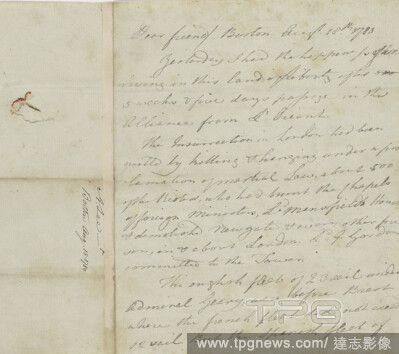 Dear friend Boston Augst 10th 1780
Yesterday I had the happiness of arr
iving in this land of liberty after
5 weeks & five days passage in the
Alliance from L'Orient.
The Insurrection in London had been
quelled by killing & hanging under a proc
lamation of martial Law, about 500
of the Rioters, who had burnt the chapels
of foreign Ministers, Ld Mansfield's House
& demolished Newgate & every other pri
son, in & about London. Ld G. Gordon
committed to the Tower.
The english fleet of 23 sail under
Admiral Geary, before Brest
where the french fleet not
sail spanish fleet of
Boston Augt. 10 1780
TPG
www.tpgnews.com / 達志影像